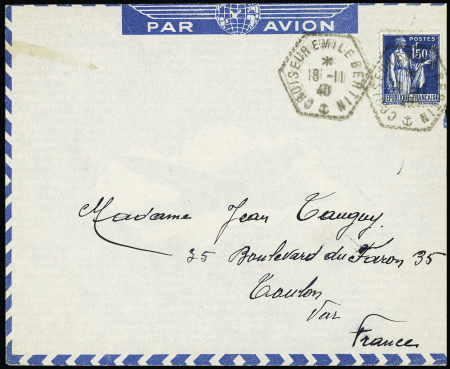 PAR AVION
CROISEUR EMILE BERTIN
18-11
40
POSTES
1F50
REPUBLIQUE FRANÇAISE
Madame Jean Tanguy
35 Boulevard du Faron 35
Toulon
Var
France